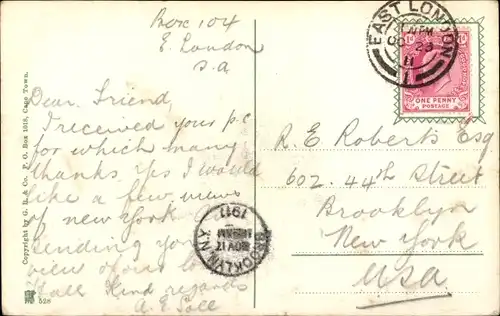 Box 104
E. London
S.A
Dear Friend,
I received your p.c
for which many
thanks. Yes I would
like a few views
of new york
sending you
view of our
Hall Kind regards
A. E.
Copyright by G. B. & Co. P. O. Box 1018, Cape Town.
528
EAST LONDON
OC 23
11
1
ONE PENNY
POSTAGE
R. E Roberts Esq
602. 44th Street
Brooklyn
New York
USA
BROOKLYN N.Y
NOV 17
AM
1911